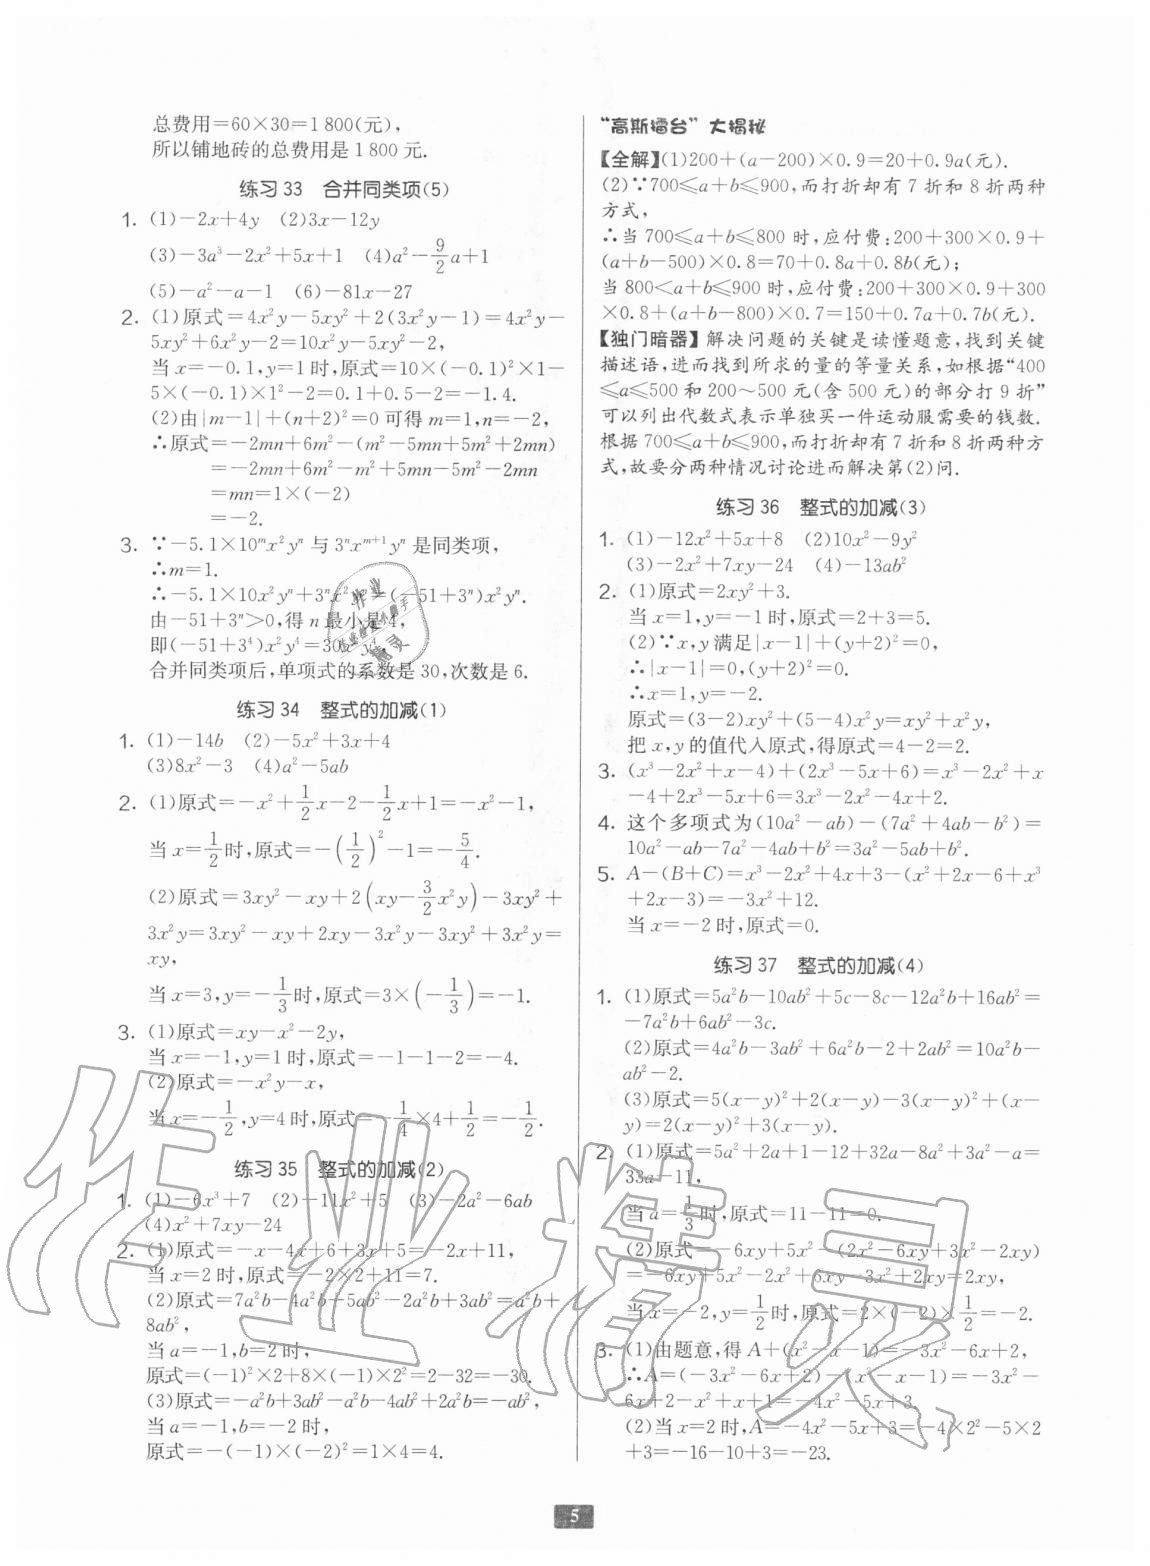 总费用=60×30=1 800(元),
所以铺地砖的总费用是 1 800 元.
练习 33 合并同类项(5)
1. (1)-2x+4y (2)3x-12y
(3)-3a³-2x²+5x+1 (4)a²-9/2a+1
(5)-a²-a-1 (6)-81x-27
2. (1)原式=4x²y-5xy²+2(3x²y-1)=4x²y-
5xy²+6x²y-2=10x²y-5xy²-2,
当 x=-0.1,y=1 时,原式=10×(-0.1)²×1-
5×(-0.1)×1²-2=0.1+0.5-2=-1.4.
(2)由|m-1|+(n+2)²=0 可得 m=1,n=-2,
∴原式=-2mn+6m²-(m²-5mn+5m²+2mn)
=-2mn+6m²-m²+5mn-5m²-2mn
=mn=1×(-2)
=-2.
3. ∵-5.1×10ᵐx²yⁿ 与 3ⁿxᵐ⁺¹yⁿ 是同类项,
∴m=1.
∴-5.1×10x²yⁿ+3ⁿx²yⁿ=(-51+3ⁿ)x²yⁿ.
由-51+3ⁿ>0,得 n 最小是 4,
即(-51+3⁴)x²y⁴=30x²y⁴.
合并同类项后,单项式的系数是 30,次数是 6.
练习 34 整式的加减(1)
1. (1)-14b (2)-5x²+3x+4
(3)8x²-3 (4)a²-5ab
2. (1)原式=-x²+1/2x-2-1/2x+1=-x²-1,
当 x=1/2时,原式=-(1/2)²-1=-5/4.
(2)原式=3xy²-xy+2(xy-3/2x²y)-3xy²+
3x²y=3xy²-xy+2xy-3x²y-3xy²+3x²y=
xy,
当 x=3,y=-1/3时,原式=3×(-1/3)=-1.
3. (1)原式=xy-x²-2y,
当 x=-1,y=1 时,原式=-1-1-2=-4.
(2)原式=-x²y-x,
当 x=-1/2,y=4 时,原式=-1/4×4+1/2=-1/2.
练习 35 整式的加减(2)
1. (1)-6x³+7 (2)-11x²+5 (3)-2a²-6ab
(4)x²+7xy-24
2. (1)原式=-x-4x+6+3x+5=-2x+11,
当 x=2 时,原式=-2×2+11=7.
(2)原式=7a²b-4a²b+5ab²-2a²b+3ab²=a²b+
8ab²,
当 a=-1,b=2 时,
原式=(-1)²×2+8×(-1)×2²=2-32=-30.
(3)原式=-a²b+3ab²-a²b-4ab²+2a²b=-ab²,
当 a=-1,b=-2 时,
原式=-(-1)×(-2)²=1×4=4.
“高斯擂台”大揭秘
【全解】(1)200+(a-200)×0.9=20+0.9a(元).
(2)∵700≤a+b≤900,而打折却有 7 折和 8 折两种
方式,
∴当 700≤a+b≤800 时,应付费:200+300×0.9+
(a+b-500)×0.8=70+0.8a+0.8b(元);
当 800<a+b≤900 时,应付费:200+300×0.9+300
×0.8+(a+b-800)×0.7=150+0.7a+0.7b(元).
【独门暗器】解决问题的关键是读懂题意,找到关键
描述语,进而找到所求的量的等量关系,如根据“400
≤a≤500 和 200~500 元(含 500 元)的部分打 9 折”
可以列出代数式表示单独买一件运动服需要的钱数.
根据 700≤a+b≤900,而打折却有 7 折和 8 折两种方
式,故要分两种情况讨论进而解决第(2)问.
练习 36 整式的加减(3)
1. (1)-12x²+5x+8 (2)10x²-9y²
(3)-2x²+7xy-24 (4)-13ab²
2. (1)原式=2xy²+3.
当 x=1,y=-1 时,原式=2+3=5.
(2)∵x,y 满足|x-1|+(y+2)²=0,
∴|x-1|=0,(y+2)²=0.
∴x=1,y=-2.
原式=(3-2)xy²+(5-4)x²y=xy²+x²y,
把 x,y 的值代入原式,得原式=4-2=2.
3. (x³-2x²+x-4)+(2x³-5x+6)=x³-2x²+x
-4+2x³-5x+6=3x³-2x²-4x+2.
4. 这个多项式为(10a²-ab)-(7a²+4ab-b²)=
10a²-ab-7a²-4ab+b²=3a²-5ab+b².
5. A-(B+C)=x³-2x²+4x+3-(x²+2x-6+x³
+2x-3)=-3x²+12.
当 x=-2 时,原式=0.
练习 37 整式的加减(4)
1. (1)原式=5a²b-10ab²+5c-8c-12a²b+16ab²=
-7a²b+6ab²-3c.
(2)原式=4a²b-3ab²+6a²b-2+2ab²=10a²b-
ab²-2.
(3)原式=5(x-y)²+2(x-y)-3(x-y)²+(x-
y)=2(x-y)²+3(x-y).
2. (1)原式=5a²+2a+1-12+32a-8a²+3a²-a=
33a-11,
当 a=1/3时,原式=11-11=0.
(2)原式=-6xy+5x²-(2x²-6xy+3x²-2xy)
=-6xy+5x²-2x²+6xy-3x²+2xy=2xy,
当 x=-2,y=1/2时,原式=2×(-2)×1/2=-2.
3. (1)由题意,得 A+(x²-x-1)=-3x²-6x+2,
∴A=(-3x²-6x+2)-(x²-x-1)=-3x²-
6x+2-x²+x+1=-4x²-5x+3.
(2)当 x=2 时,A=-4x²-5x+3=-4×2²-5×2
+3=-16-10+3=-23.
5
作业精灵